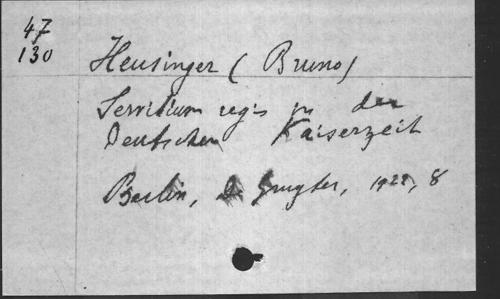 47
130
Heusinger (Bruno)
Servitium regis in der
Deutschen Kaiserzeit
Berlin, de Gruyter, 1922, 8